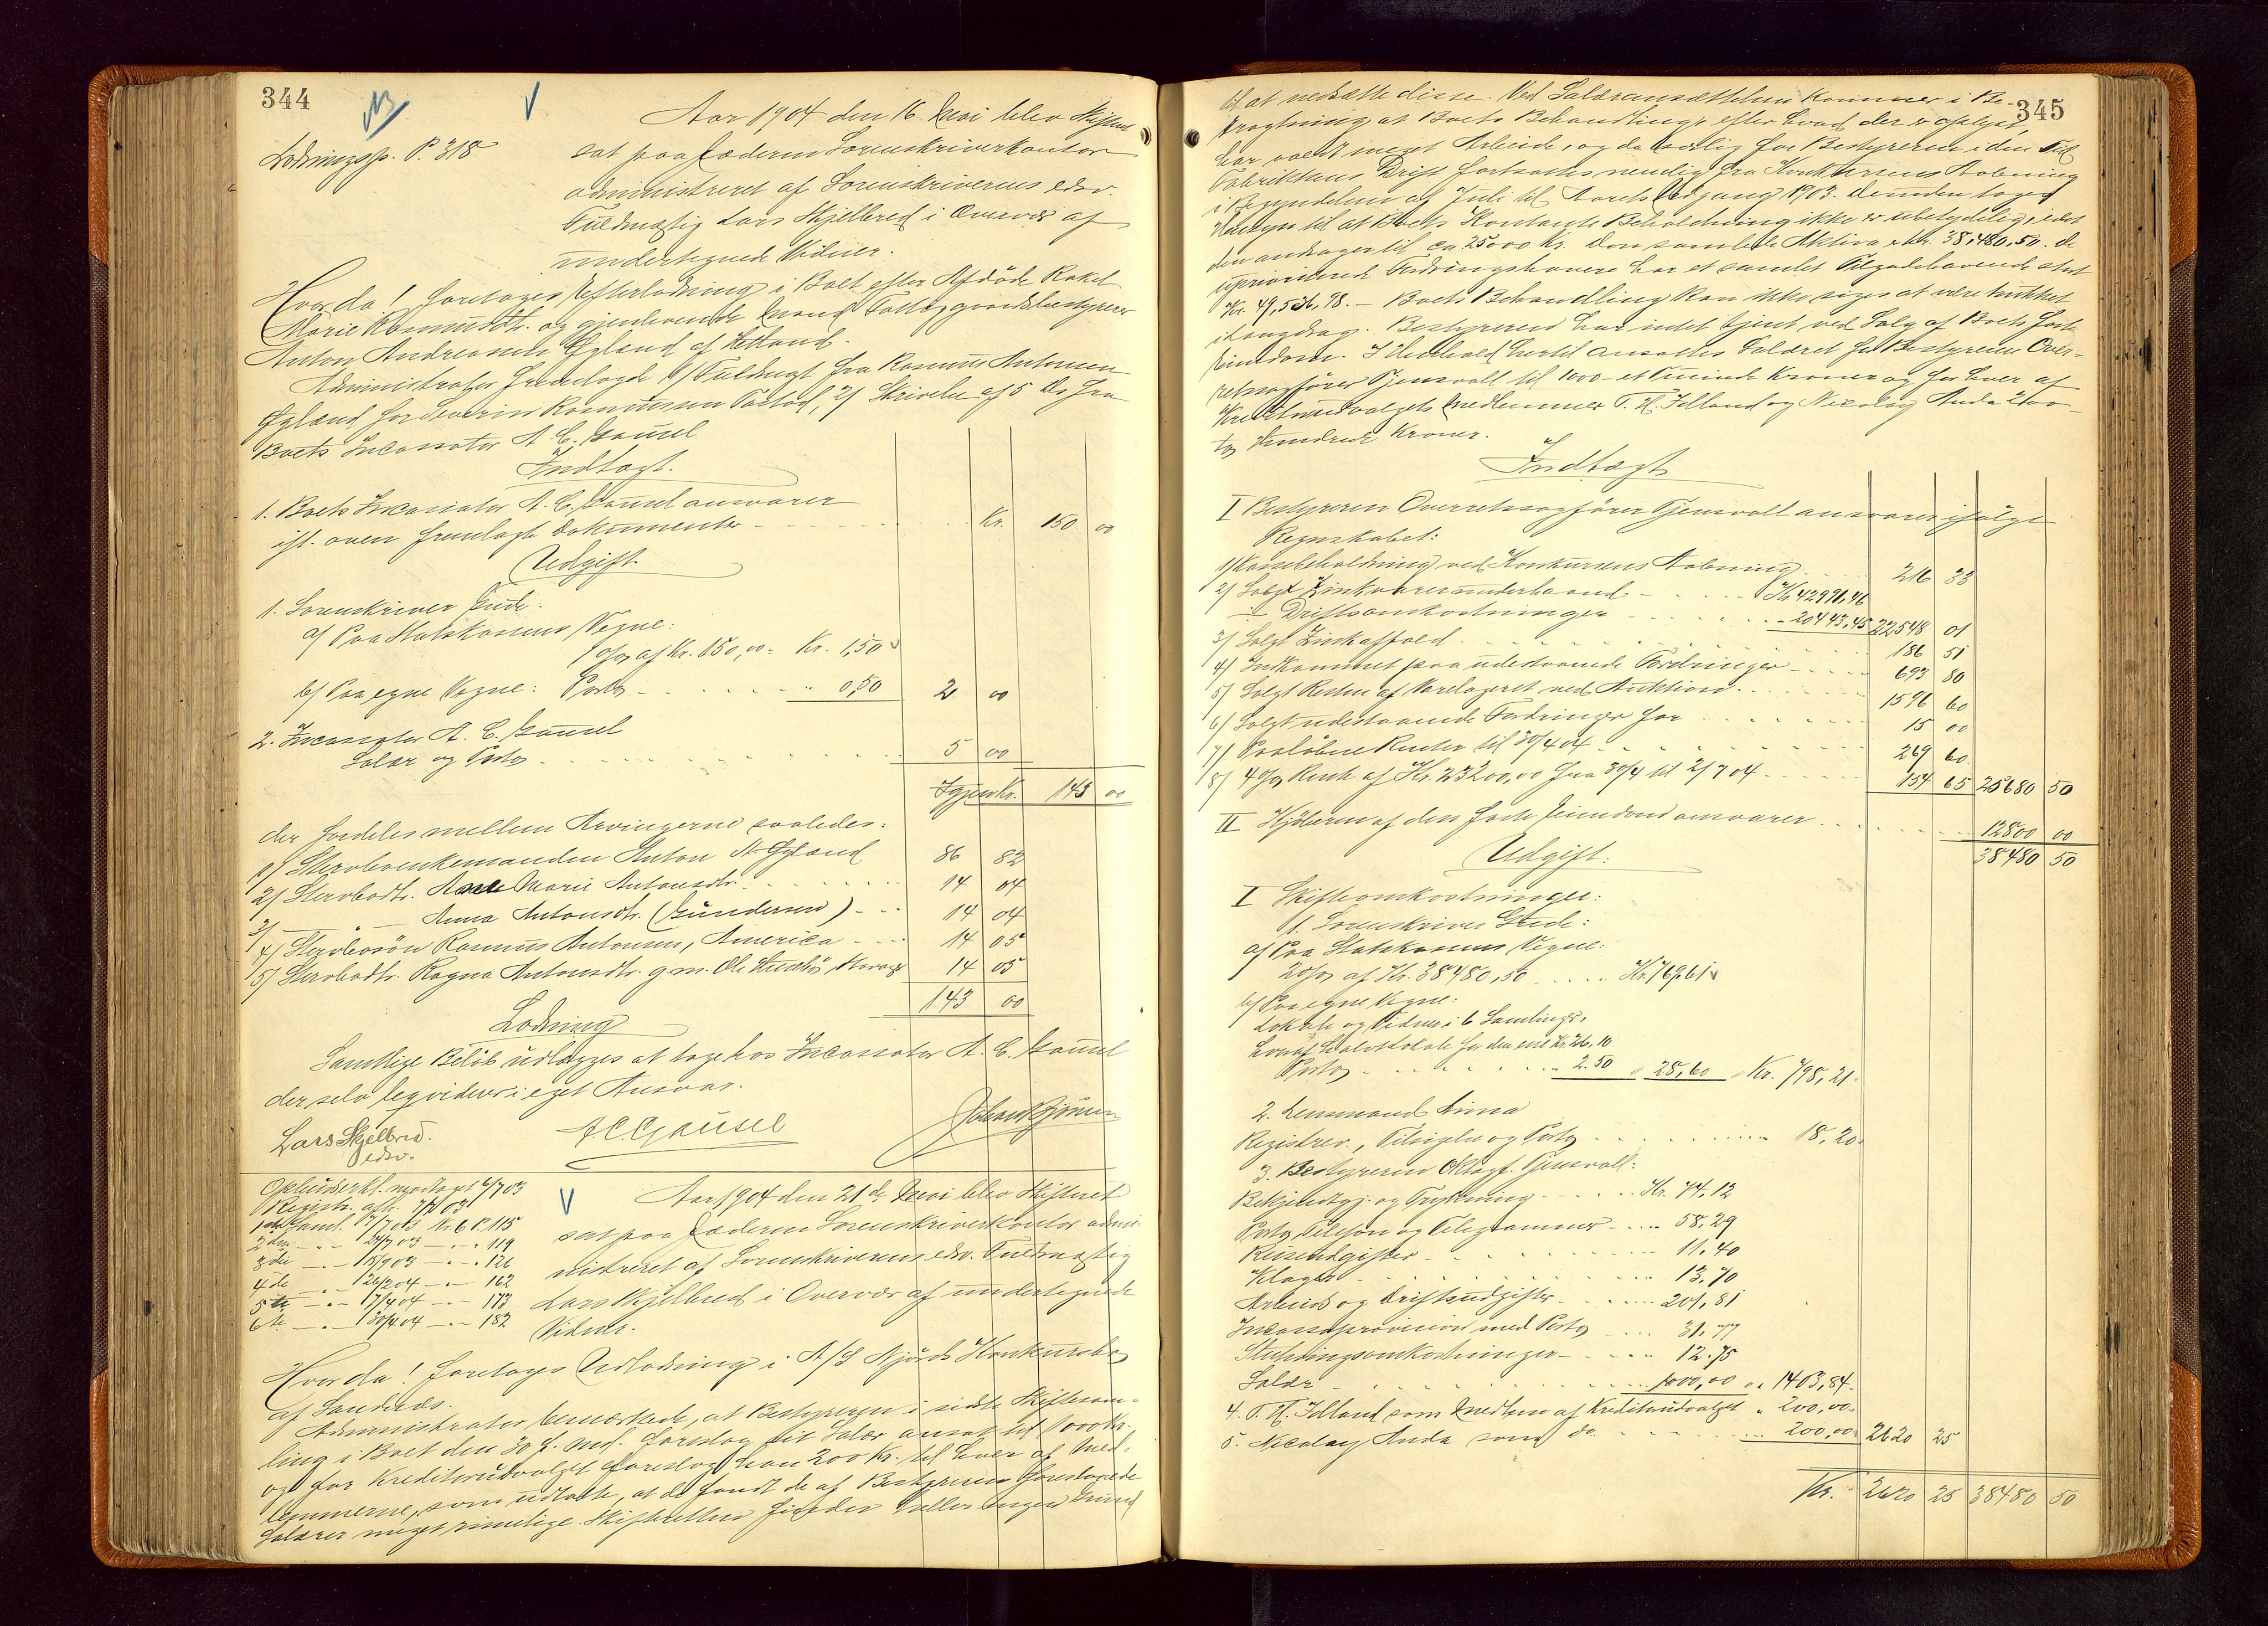 344
Lodningsp. P. 318
Aar 1904 den 16 Mai blev Skifteret
sat paa Jæderens Sorenskriverkontor
administreret af Sorenskriverens edsv.
Fuldmægtig Lars Skjelbred i Overvær af
undertegnede Vidner.
Hvorda! foretoges Efterlodning i Boet efter Afdøde Rakel
Marie Rasmusdtr. og gjenlevende Mand Fattiggaardsbestyrer
Anton Andreasen Øgland af Hetland.
Administrator fremlagde 1/ Fuldmagt fra Rasmus Antonsen
Øgland for Severin Rasmussen Tastad, 2/ Skrivelse af 5 ds fra
Boets Incassator A. C. Gausel
Indtægt.
1. Boets Incassator A. C. Gausel ansvarer
ifl. oven fremlagte Dokumenter Kr. 150 00
Udgift
1. Sorenskriver Gude:
a/ Paa Statskassens Vegne:
1 o/o af Kr. 150,00 = Kr. 1,50
b/ Paa egne Vegne: Porto " 0,50 2 00
2. Incassator A. C. Gausel
Salær og Porto 5 00
Igjen Kr. 143 00
der fordeles mellem Arvingerne saaledes:
1/ Stervboenkemanden Anton A. Øgland 86 82
2/ Stervbodtr. Ane Marie Antonsdtr. 14 04
3/ — " — Anna Antonsdtr. (Gundersen) 14 04
4/ Stervbosøn Rasmus Antonsen, America 14 05
5/ Stervbodtr. Ragna Antonsdtr. g. m. Ole 14 05
143 00
Lodning
Samtlige Beløb udlægges at tage hos Incassator A. C. Gausel
der selv leqviderer i eget Ansvar.
Lars Skjelbred.
edsv.
A. C. Gausel
Opbudserkl. modtaget 6/7 03
Registr. afh. 7/7 03
1ste Saml. 17/7 03 Nr. 6 P. 115
2den — " — 24/7 03 — " — 119
3die — " — 15/9 03 — " — 126
4de — " — 26/2 04 — " — 162
5te — " — 17/4 04 — " — 173
6te — " — 30/4 04 — " — 182
Aar 1904 den 21de Mai blev Skifteret
sat paa Jæderens Sorenskriverkontor admi-
nistreret af Sorenskriverens edsv. Fuldmægtig
Lars Skjelbred i Overvær af undertegnede
Vidner.
Hvorda! foretoges Udlodning i A/S Njørds Konkursbo
af Sandnæs.
Administrator bemærkede, at Bestyreren i sidste Skiftesam-
ling i Boet den 30 f. md. foreslog sit Salær ansat til 1000 Kr.
og for Kreditorudvalget foreslog han 200 Kr. til hver af Med-
lemmerne, som udtalte, at de fandt de af Bestyreren foreslaaede
Salærer meget rimelige. Skifteretten finder heller ingen Grund
345
til at nedsætte disse. Ved Salæransættelsen kommer i Be-
tragtning at Boets Behandling, efter hvad der er oplyst,
har voldt meget Arbeide, og da særlig for Bestyreren i den Tid
Fabrikkens Drift fortsattes nemlig fra Konkursens Aabning
i Begyndelsen af Juli til Aarets Udgang 1903. Desuden tages
Hensyn til at Boets Kontante Beholdning ikke er ubetydelig, idet
den andrager til ca 25000 Kr. Den samlede Aktiva er Kr. 38,480,50. de
uprioriterede Fordringshavere har et samlet Tilgodehavende stort
Kr. 49,536.98. — Boets Behandling kan ikke siges at være trukket
i Langdrag. Bestyreren har intet tjent ved Salg af Boets faste
Eiendom. I Henhold hertil ansattes Salæret for Bestyreren Over-
retssagfører Tjensvoll til 1000 – et Tusinde Kroner og for hver af
Kreditorudvalgets Medlemmer T. H. Jelland og Nicolay Anda 200 –
to Hundrede Kroner.
Indtægt
I Bestyreren Overretssagfører Tjensvoll ansvarer ifølge
Regnskabet:
1/ Kassebeholdning ved Konkursens Aabning 216 33
2/ Solgt Zinkvarer underhaand Kr 42991,46
÷ Driftsomkostninger " 20443,45 22548 01
3/ Solgt Zinkaffald 186 51
4/ Indkommet paa udestaaende Fordringer 693 80
5/ Solgt Resten af Varelageret ved Auktion 1596 60
6/ Solgt udestaaende Fordringer for 15 00
7/ Paaløbne Renter til 30/4 04 269 60
8/ 4 o/o Rente af Kr. 23200,00 fra 30/4 til 2/7 04 154 65 25680 50
II Kjøberen af den faste Eiendom ansvarer 12800 00
38480 50
Udgift.
I Skifteomkostninger:
1. Sorenskriver Gude:
a/ Paa Statskassens Vegne:
2 o/o af Kr. 38480,50 Kr. 769,61
b/ Paa egne Vegne:
Lokale og Vidner i 6 Samlinger,
hvoraf halvt Lokale for den ene Kr. 26,10
Porto " 2.50 " 28,60 Kr. 798,21
2. Lensmand Aima
Registrer., Tilsigelse og Porto " 18,20
3. Bestyreren ORsagf. Tjensvoll:
Bekjendtgj. og Trykning Kr. 74,12
Porto, Telefon og Telegrammer " 58,29
Reiseudgifter " 11,40
Klager " 13,70
Arbeids og Driftsudgifter " 201,81
Incassoprovision med Porto " 31,77
Stevningsomkostninger " 12,75
Salær " 1000,00 " 1403,84
4. T. H. Jelland som Medlem af Kreditorudvalget " 200,00
5. Nicolay Anda som do " 200,00 2620 25
Kr. 2620 25 38480 50